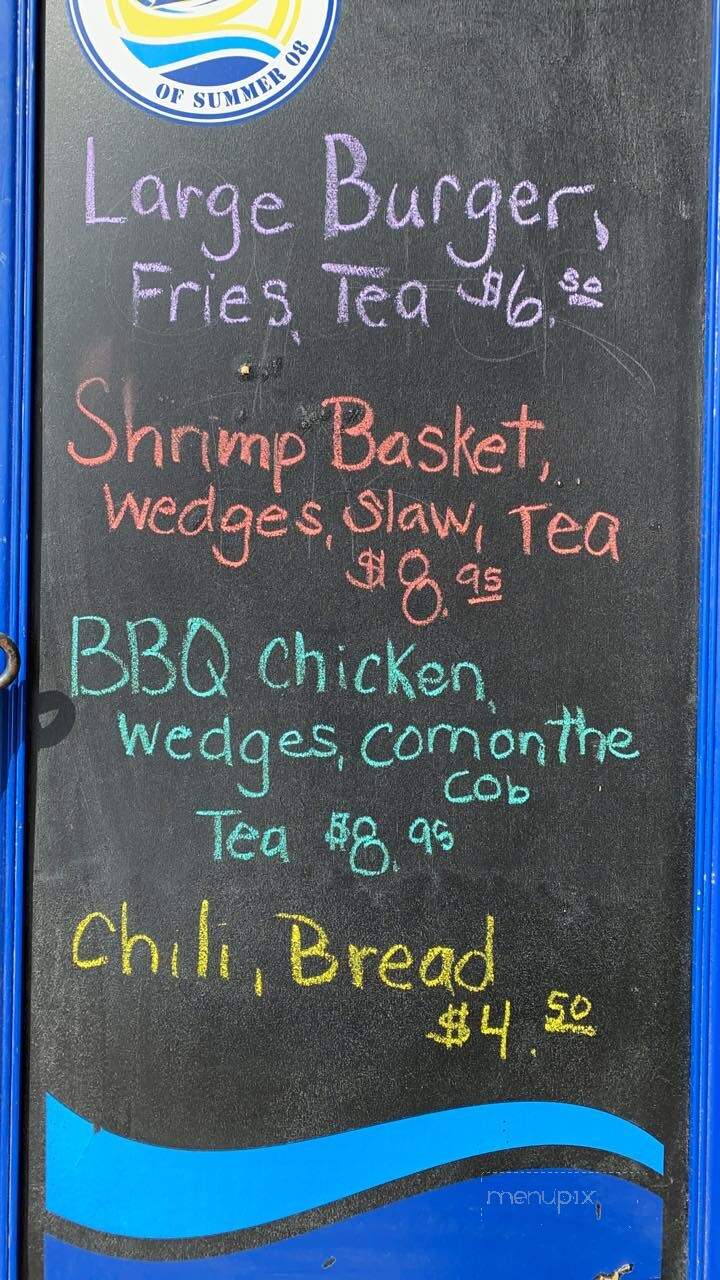 OF SUMMER 08
Large Burger,
Fries, Tea $6.50
Shrimp Basket,
Wedges, Slaw, Tea
$8.95
BBQ Chicken,
Wedges, Corn on the
Cob
Tea $8.95
Chili, Bread
$4.50
menupix